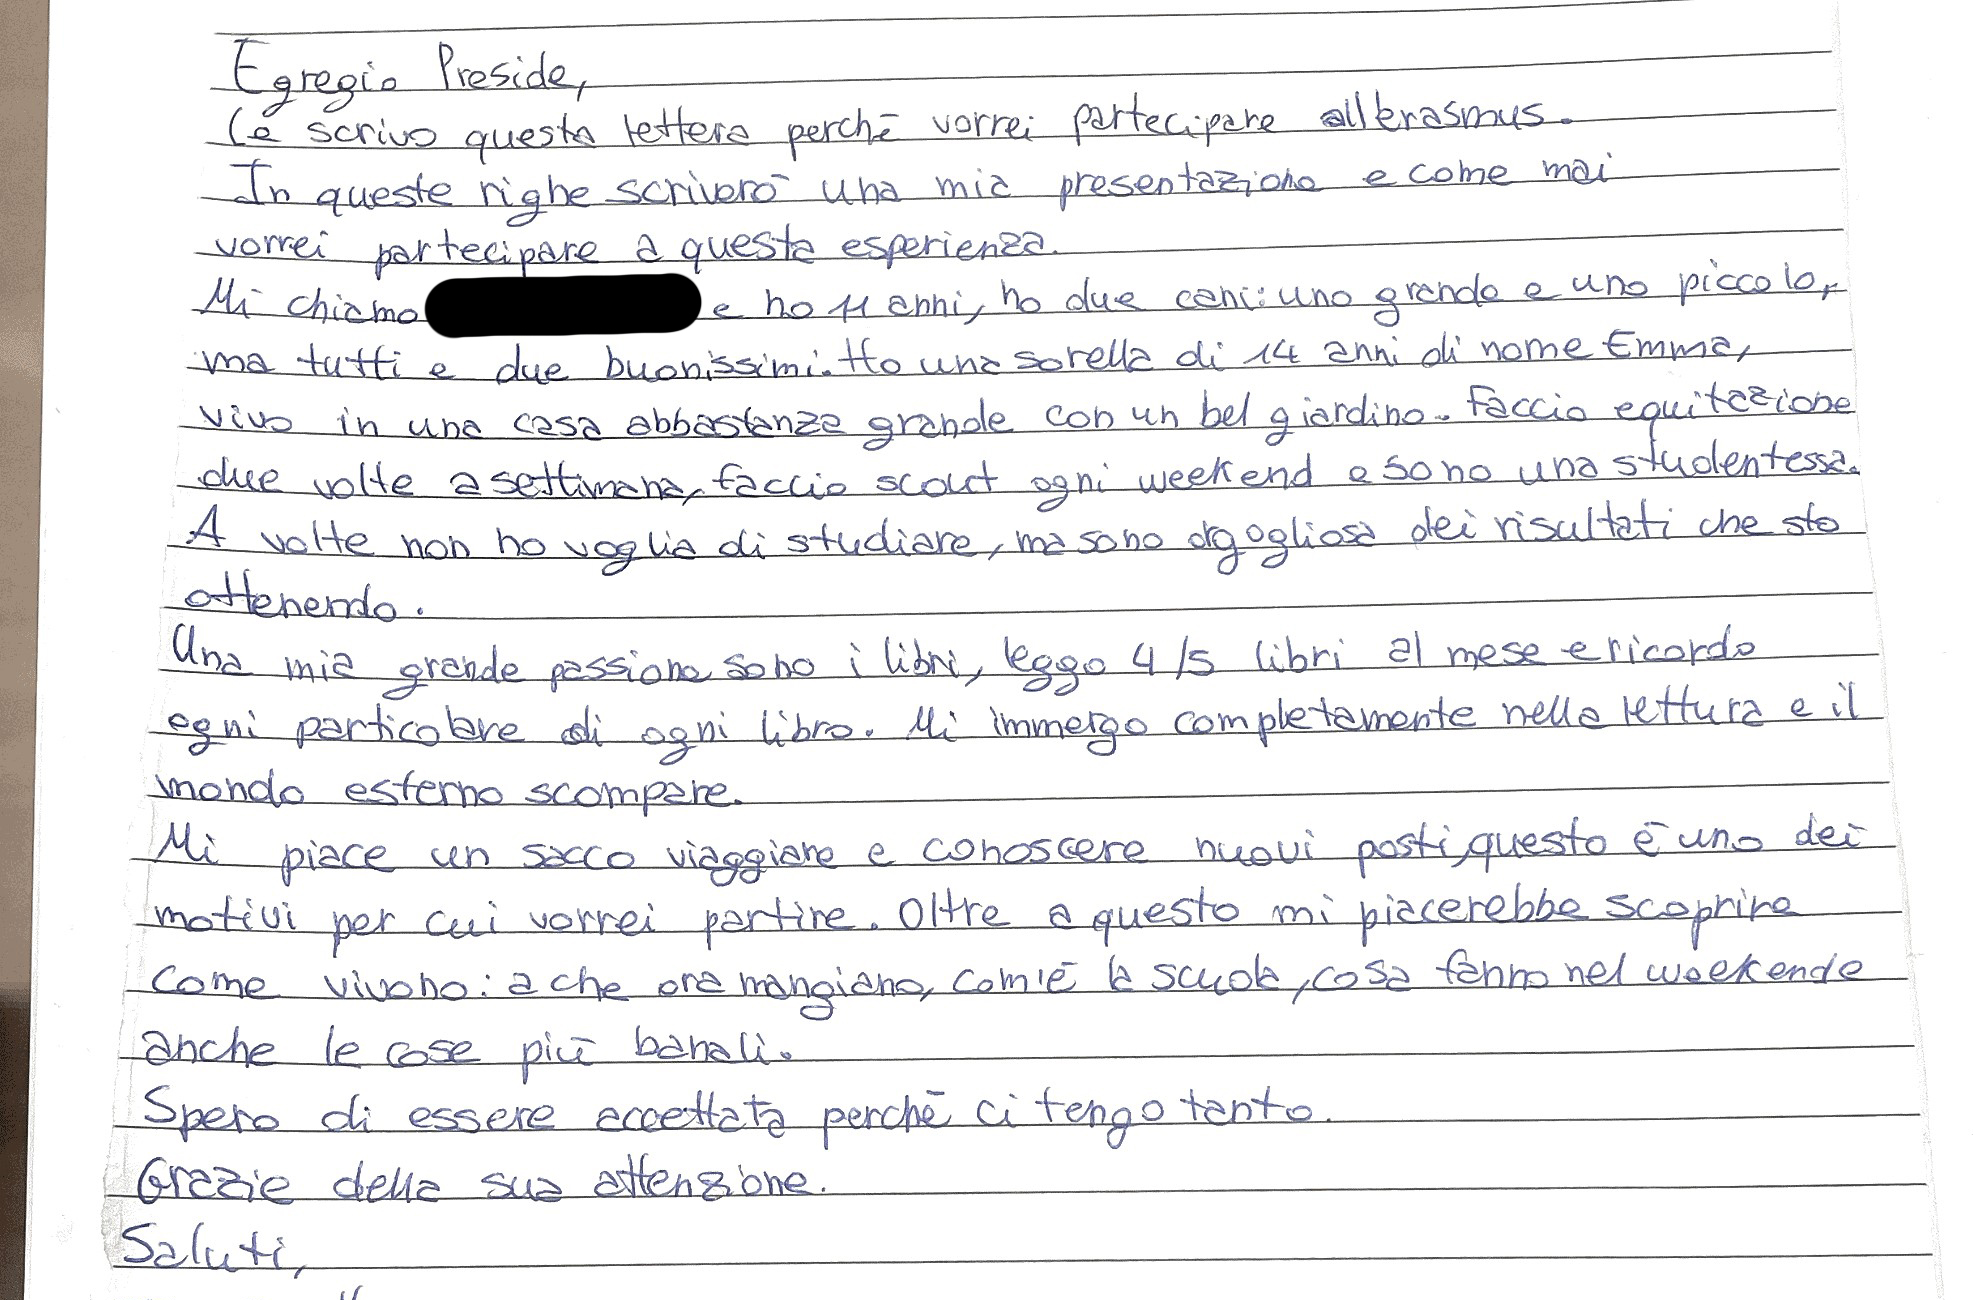 Egregio Preside,
Le scrivo questa lettera perchē vorrei partecipare all'erasmus.
In queste righe scriverō una mia presentazione e come mai
vorrei partecipare a questa esperienza.
Mi chiamo e ho 11 anni, ho due cani: uno grande e uno piccolo,
ma tutti e due buonissimi. Ho una sorella di 14 anni di nome Emma,
vivo in una casa abbastanza grande con un bel giardino. Faccio equitazione
due volte a settimana, faccio scout ogni weekend e sono una studentessa.
A volte non ho voglia di studiare, ma sono orgogliosa dei risultati che sto
ottenendo.
Una mia grande passione sono i libri, leggo 4/5 libri al mese e ricordo
ogni particolare di ogni libro. Mi immergo completamente nella lettura e il
mondo esterno scompare.
Mi piace un sacco viaggiare e conoscere nuovi posti, questo ē uno dei
motivi per cui vorrei partire. Oltre a questo mi piacerebbe scoprire
come vivono: a che ora mangiano, com'ē la scuola, cosa fanno nel weekend e
anche le cose piū banali.
Spero di essere accettata perchē ci tengo tanto.
Grazie della sua attenzione.
Saluti,